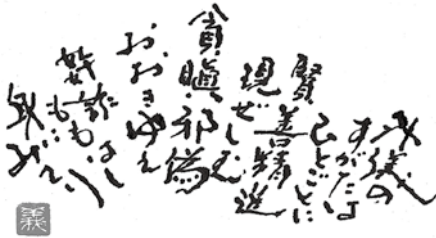 外儀の
すがたは
ひとごとに
賢善精進
現ぜしむ
貪瞋邪偽
おおきゆえ
奸詐ももはし
身にみてり